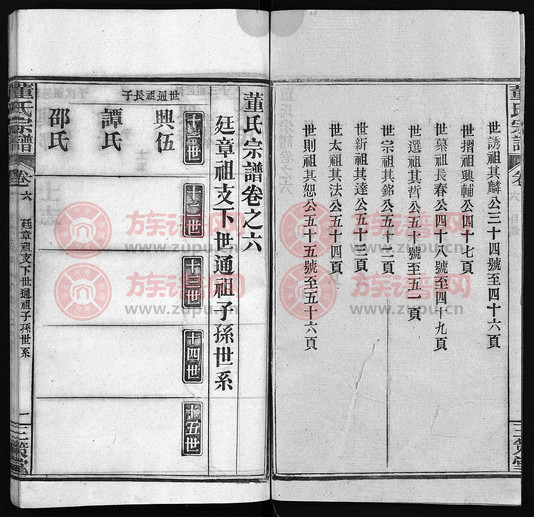 董氏宗譜
卷六
世誘祖其麟公三十四號至四十六頁
世摺祖聃輔公四十七頁
世慕祖長春公四十八號至四十九
世選祖其哲公五十號至五一頁
世宗祖其錦公五十二頁
世新祖其達公五十三頁
世太祖其法公五十四頁
世則祖其恕公五十五號至五十六頁
董氏宗譜卷之六
廷章祖支下世通祖子孫世系
十二世
十三世
十四世
十五世
世通祖長子
興伍
譚氏
邵氏
董氏宗譜
卷六
廷章祖支下世通祖子孫世系
一
三策堂
族譜网
www.zupu.cn
族譜网
www.zupu.cn
族譜网
www.zupu.cn
族譜网
www.zupu.cn